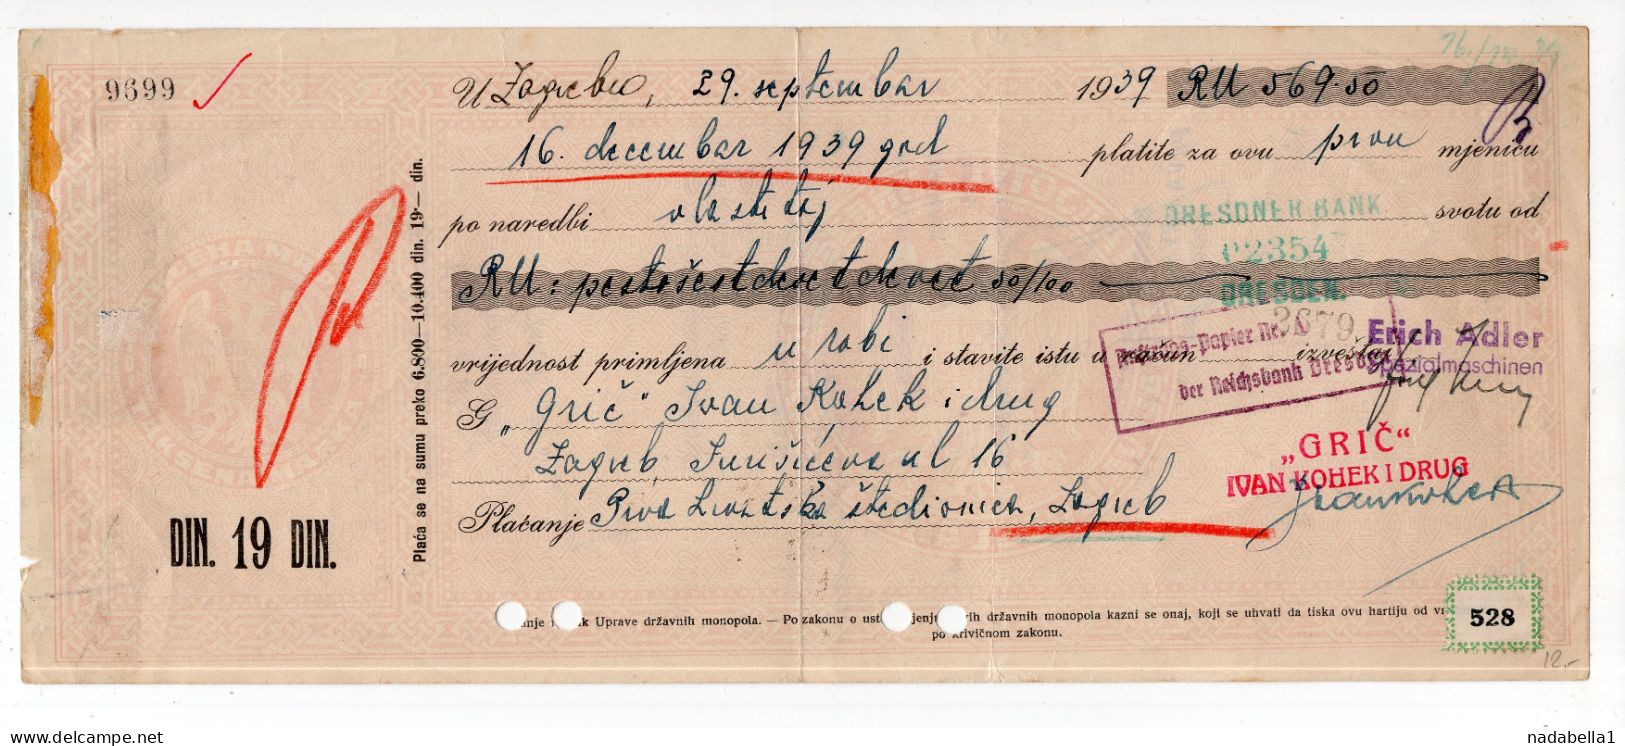 9699
16./12. 39
U Zagrebu, 29. septembar 1939 RM 569.50
16. decembar 1939 god platite za ovu prvu mjenicu
po naredbi vlastitoj svotu od
DRESDNER BANK
02354
DRESDEN.
RM: petstošestdesetdevet 50/100
vrijednost primljena u robi i stavite istu u račun izveštaj
Auftrags-Papier Nr. 3679
der Reichsbank Dresden
Erich Adler
Spezialmaschinen
G „Grič" Ivan Kohek i drug
Zagreb, Jurišićeva ul 16
„GRIČ“
IVAN KOHEK I DRUG
Ivan Kohek
Plaćanje Prva hrvatska štedionica, Zagreb
Plaća se na sumu preko 6.800—10.400 din. 19·— din.
DIN. 19 DIN.
Uprave državnih monopola. — Po zakonu o državnih monopola kazni se onaj, koji se uhvati da tiska ovu hartiju od
po krivičnom zakonu.
528
12.-
delcampe.net
nadabella1